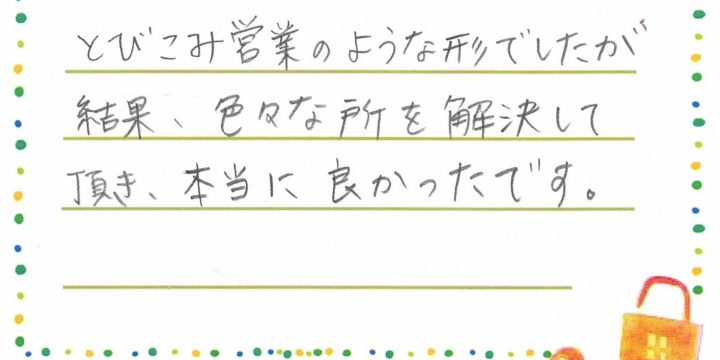 とびこみ営業のような形でしたが
結果、色々な所を解決して
頂き、本当に良かったです。